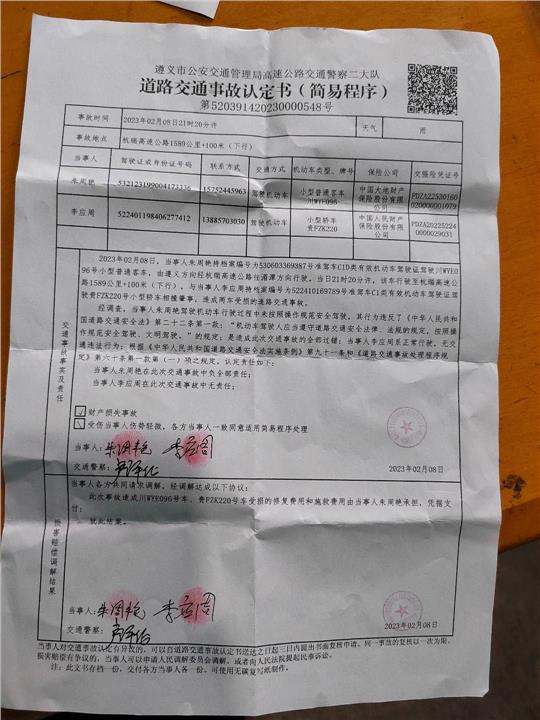 遵义市公安交通管理局高速公路交通警察二大队
道路交通事故认定书（简易程序）
第520391420230000548号
事故时间 2023年02月08日21时20分许 天气 雨
事故地点 杭瑞高速公路1589公里+100米（下行）
当事人 驾驶证或身份证号码 联系方式 交通方式 机动车类型、牌号 保险公司 交强险凭证号
朱周艳 532123199004173336 15752445963 驾驶机动车 小型普通客车 川WYE096 中国大地财产保险股份有限公司
李应周 522401198406277412 13885703030 驾驶机动车 小型轿车 贵FZK220 中国人民财产保险股份有限公司
交通事故事实及责任
2023年02月08日，当事人朱周艳持档案编号为530603369387号准驾车C1D类有效机动车驾驶证驾驶川WYE0
96号小型普通客车，由遵义方向经杭瑞高速公路往湄潭方向行驶，当日21时20分许，该车行驶至杭瑞高速公
路1589公里+100米（下行），与当事人李应周持档案编号为522410169789号准驾车C1类有效机动车驾驶证驾
驶贵FZK220号小型轿车相撞肇事，造成两车受损的道路交通事故。
经调查，当事人朱周艳驾驶机动车行驶过程中未按照操作规范安全驾驶，其行为违反了《中华人民共
和国道路交通安全法》第二十二条第一款：“机动车驾驶人应当遵守道路交通安全法律、法规的规定，按照操
作规范安全驾驶、文明驾驶。”的规定；是造成此次交通事故的全部过错；当事人李应周系正常行驶，无交
通违法行为；根据《中华人民共和国道路交通安全法实施条例》第九十一条和《道路交通事故处理程序规
定》第六十条第一款第（一）项之规定，认定责任如下：
当事人朱周艳在此次交通事故中负全部责任；
当事人李应周在此次交通事故中无责任；
财产损失事故
受伤当事人伤势轻微，各方当事人一致同意适用简易程序处理
当事人：朱周艳 李应周
交通警察：
2023年02月08日
损害赔偿调解结果
当事人各方共同请求调解，经调解达成以下协议：
此次事故造成川WYE096号车、贵FZK220号车受损的修复费用和施救费用由当事人朱周艳承担，凭据支
付；
就此结案。
当事人：朱周艳 李应周
交通警察：
2023年02月08日
当事人对交通事故认定有异议的，可以自道路交通事故认定书送达之日起三日内提出书面复核申请。同一事故的复核以一次为限。
损害赔偿有争议的，当事人可以申请人民调解委员会调解，或者向人民法院提起民事诉讼。
注：此文书存档一份，交付各方当事人各一份。可使用无碳复写纸制作。